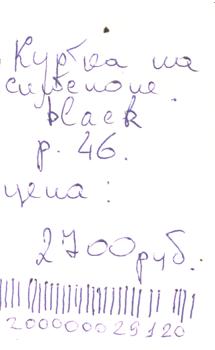 Куртка на
синтепоне
black
р. 46.
цена:
2700 руб.
200000029120